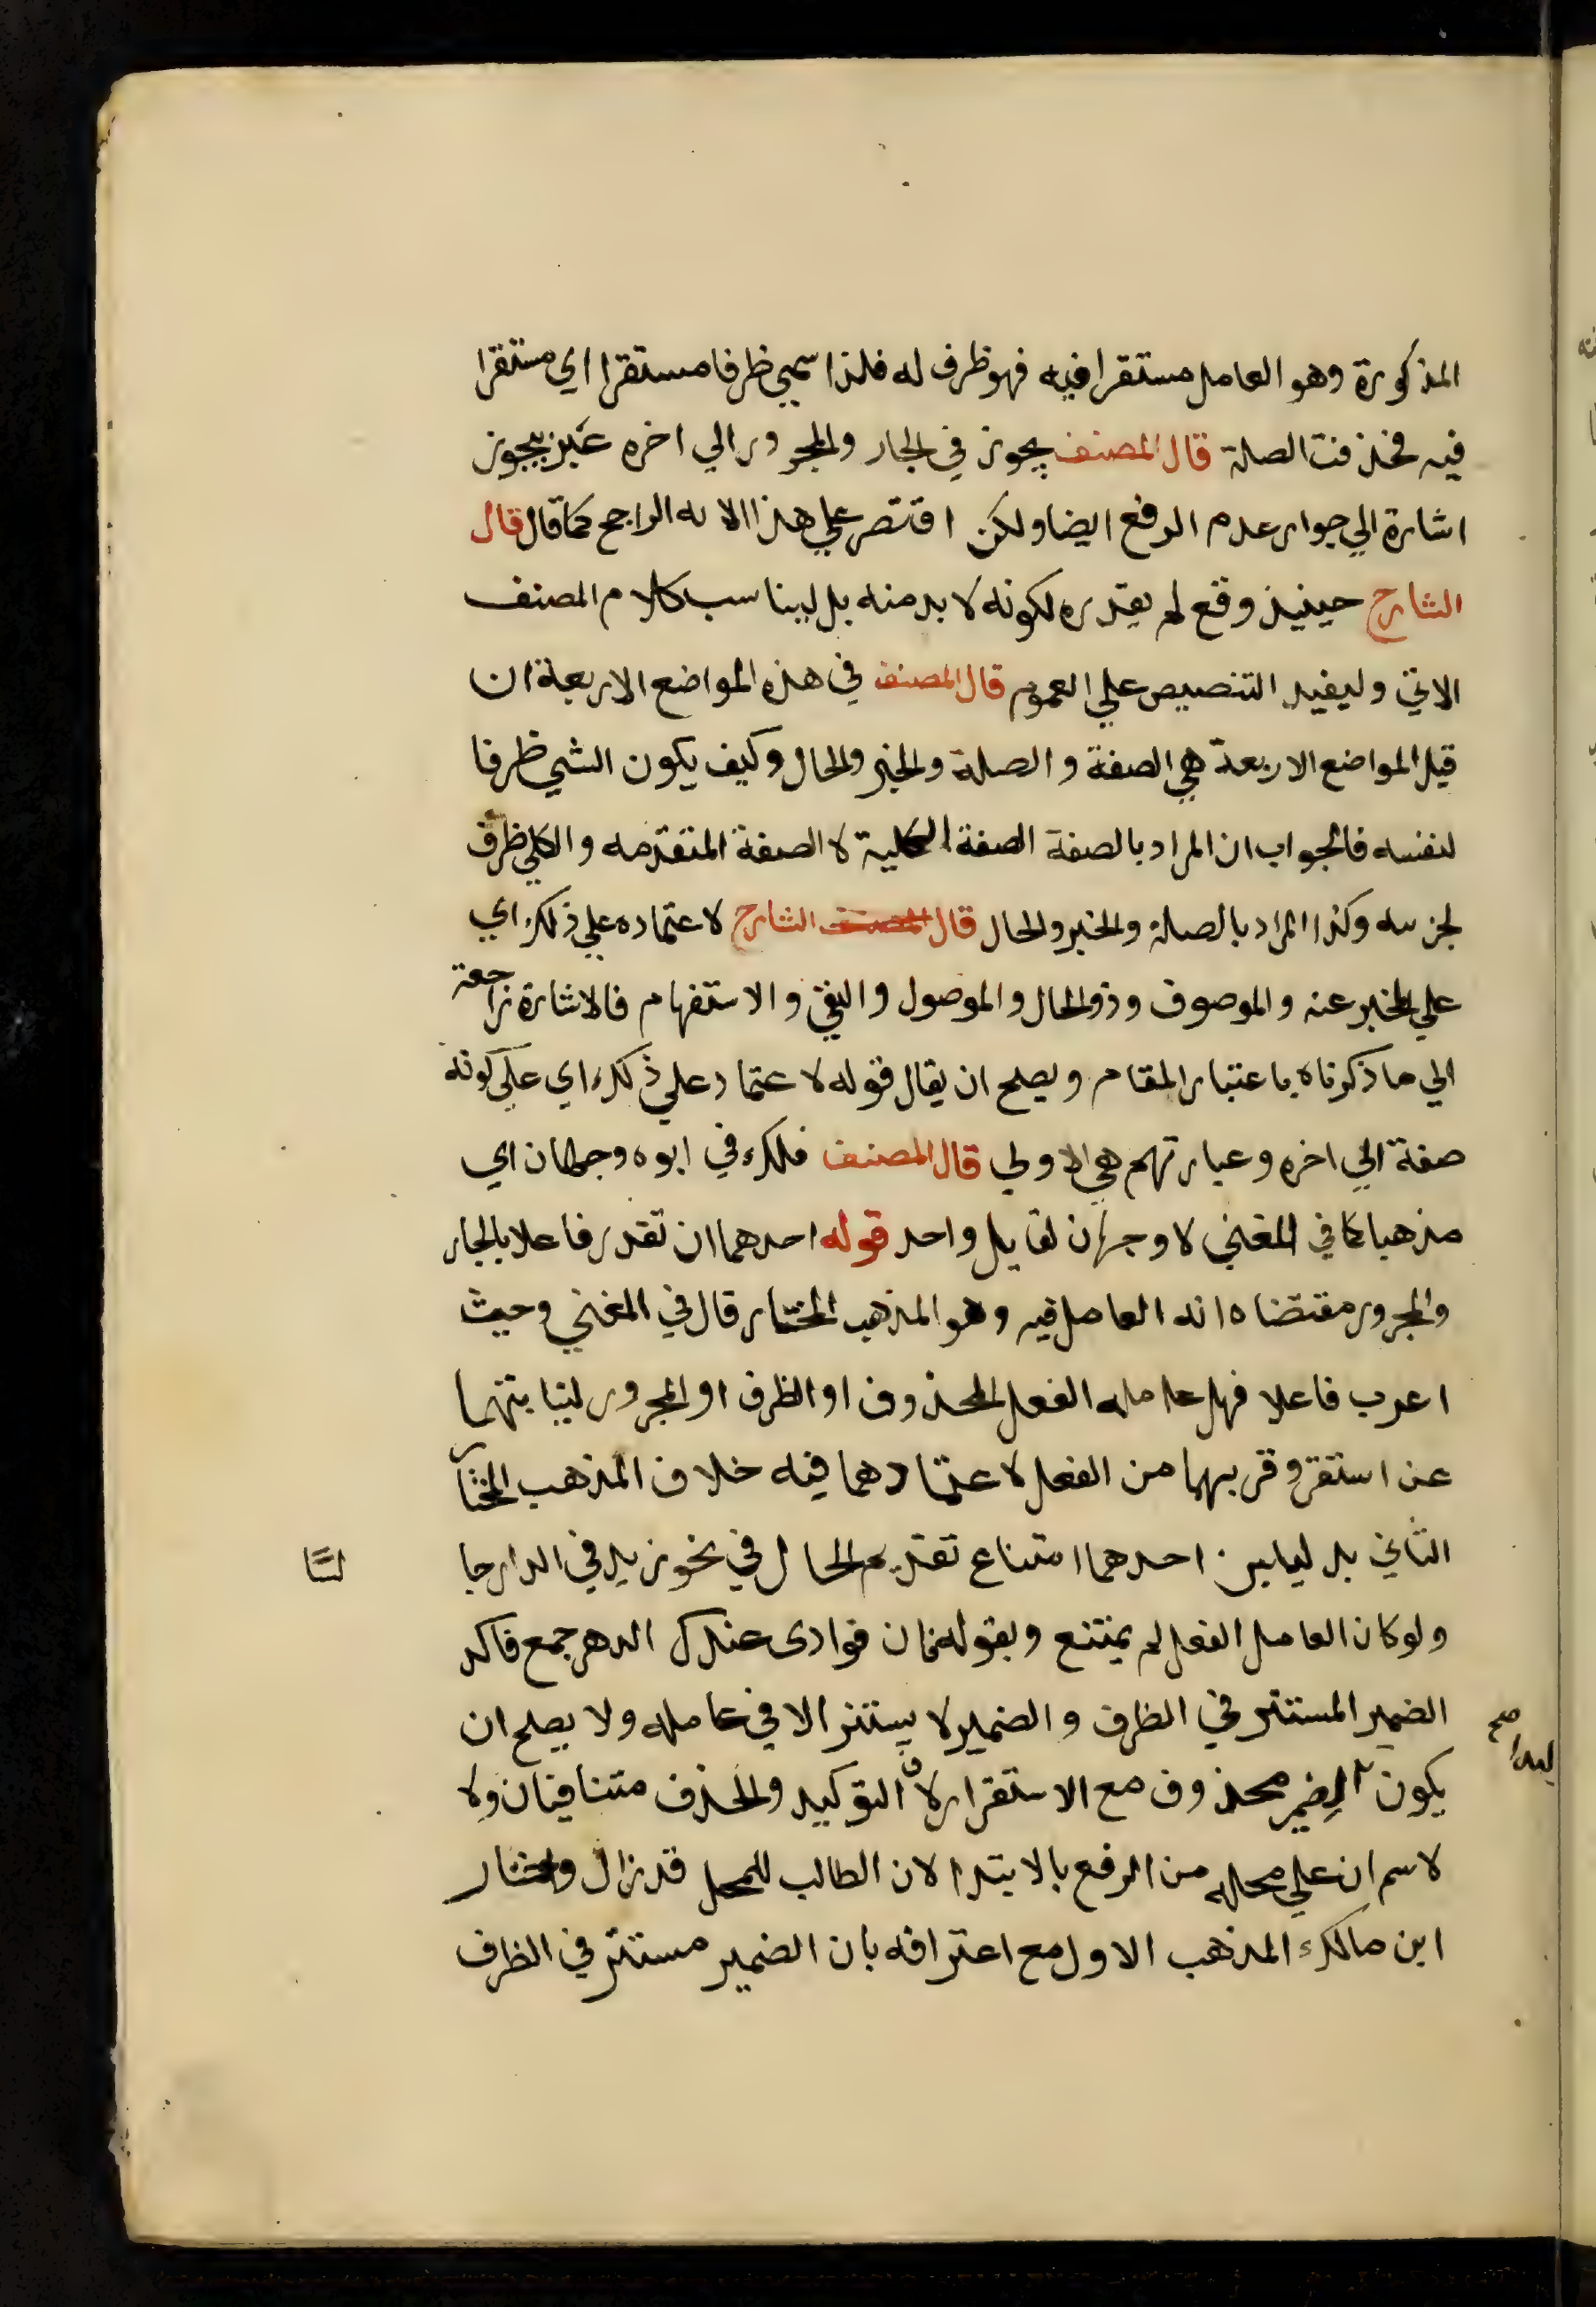 المذكورة وهو العامل مستقرا فيه فهو ظرف له فلذا سمي ظرفا مستقرا اي مستقرا
فيه فحذفت الصلة قال المصنف يجوز في الجار والمجرور الي اخره عبر بيجوز
اشارة الي جواز عدم الرفع ايضا ولكن اقتصر علي هذا لانه الراجح كما قال قال
الشارح حينيذ وقع لم يقدره لكونه لا بد منه بل ليناسب كلام المصنف
الاتي وليفيد التنصيص علي العموم قال المصنف في هذه المواضع الاربعة ان
قيل المواضع الاربعة هي الصفة والصلة والخبر والحال وكيف يكون الشي ظرفا
لنفسه فالجواب ان المراد بالصفة الصفة الكلية لا الصفة المتقدمه والكلي ظرف
لجزييه وكذا المراد بالصلة والخبر والحال قال المصنف الشارح لاعتماده علي ذلك اي
علي المخبر عنه والموصوف وذو الحال والموصول والنفي والاستفهام فالاشارة راجعة
الي ما ذكرناه باعتبار المقام ويصلح ان يقال قوله لاعتماد علي ذلك اي علي كونه
صفة الي اخره وعبارتهم هي الاولي قال المصنف فلك في ابوه وجهان اي
مذهبا كما في المغني لا وجهان لقايل واحد قوله احدهما ان تقدر فاعلا بالجار
والمجرور مقتضاه انه العامل فيه وهو المذهب المختار قال في المغني وحيث
اعرب فاعلا فهل عامله الفعل المحذوف او الظرف او المجرور لنيابتهما
عن استقر وقربهما من الفعل لاعتمادهما فيه خلاف المذهب المختار
الثاني بدليلين احدهما امتناع تقديم الحال في نحو زيد في الدار جا
لسًا
ولو كان العامل الفعل لم يمتنع وبقوله فان فوادى عندك الدهر جمع فاكد
الضمير المستتر في الظرف والضمير لا يستتر الا في عامله ولا يصلح ان
يكون لضمير محذوف مع الاستقرار لان التوكيد والحذف متنافيان ولا
صح
لاسم ان علي محله من الرفع بالابتدا لان الطالب للمحل قد زال واختار
ابن مالك المذهب الاول مع اعترافه بان الضمير مستتر في الظرف